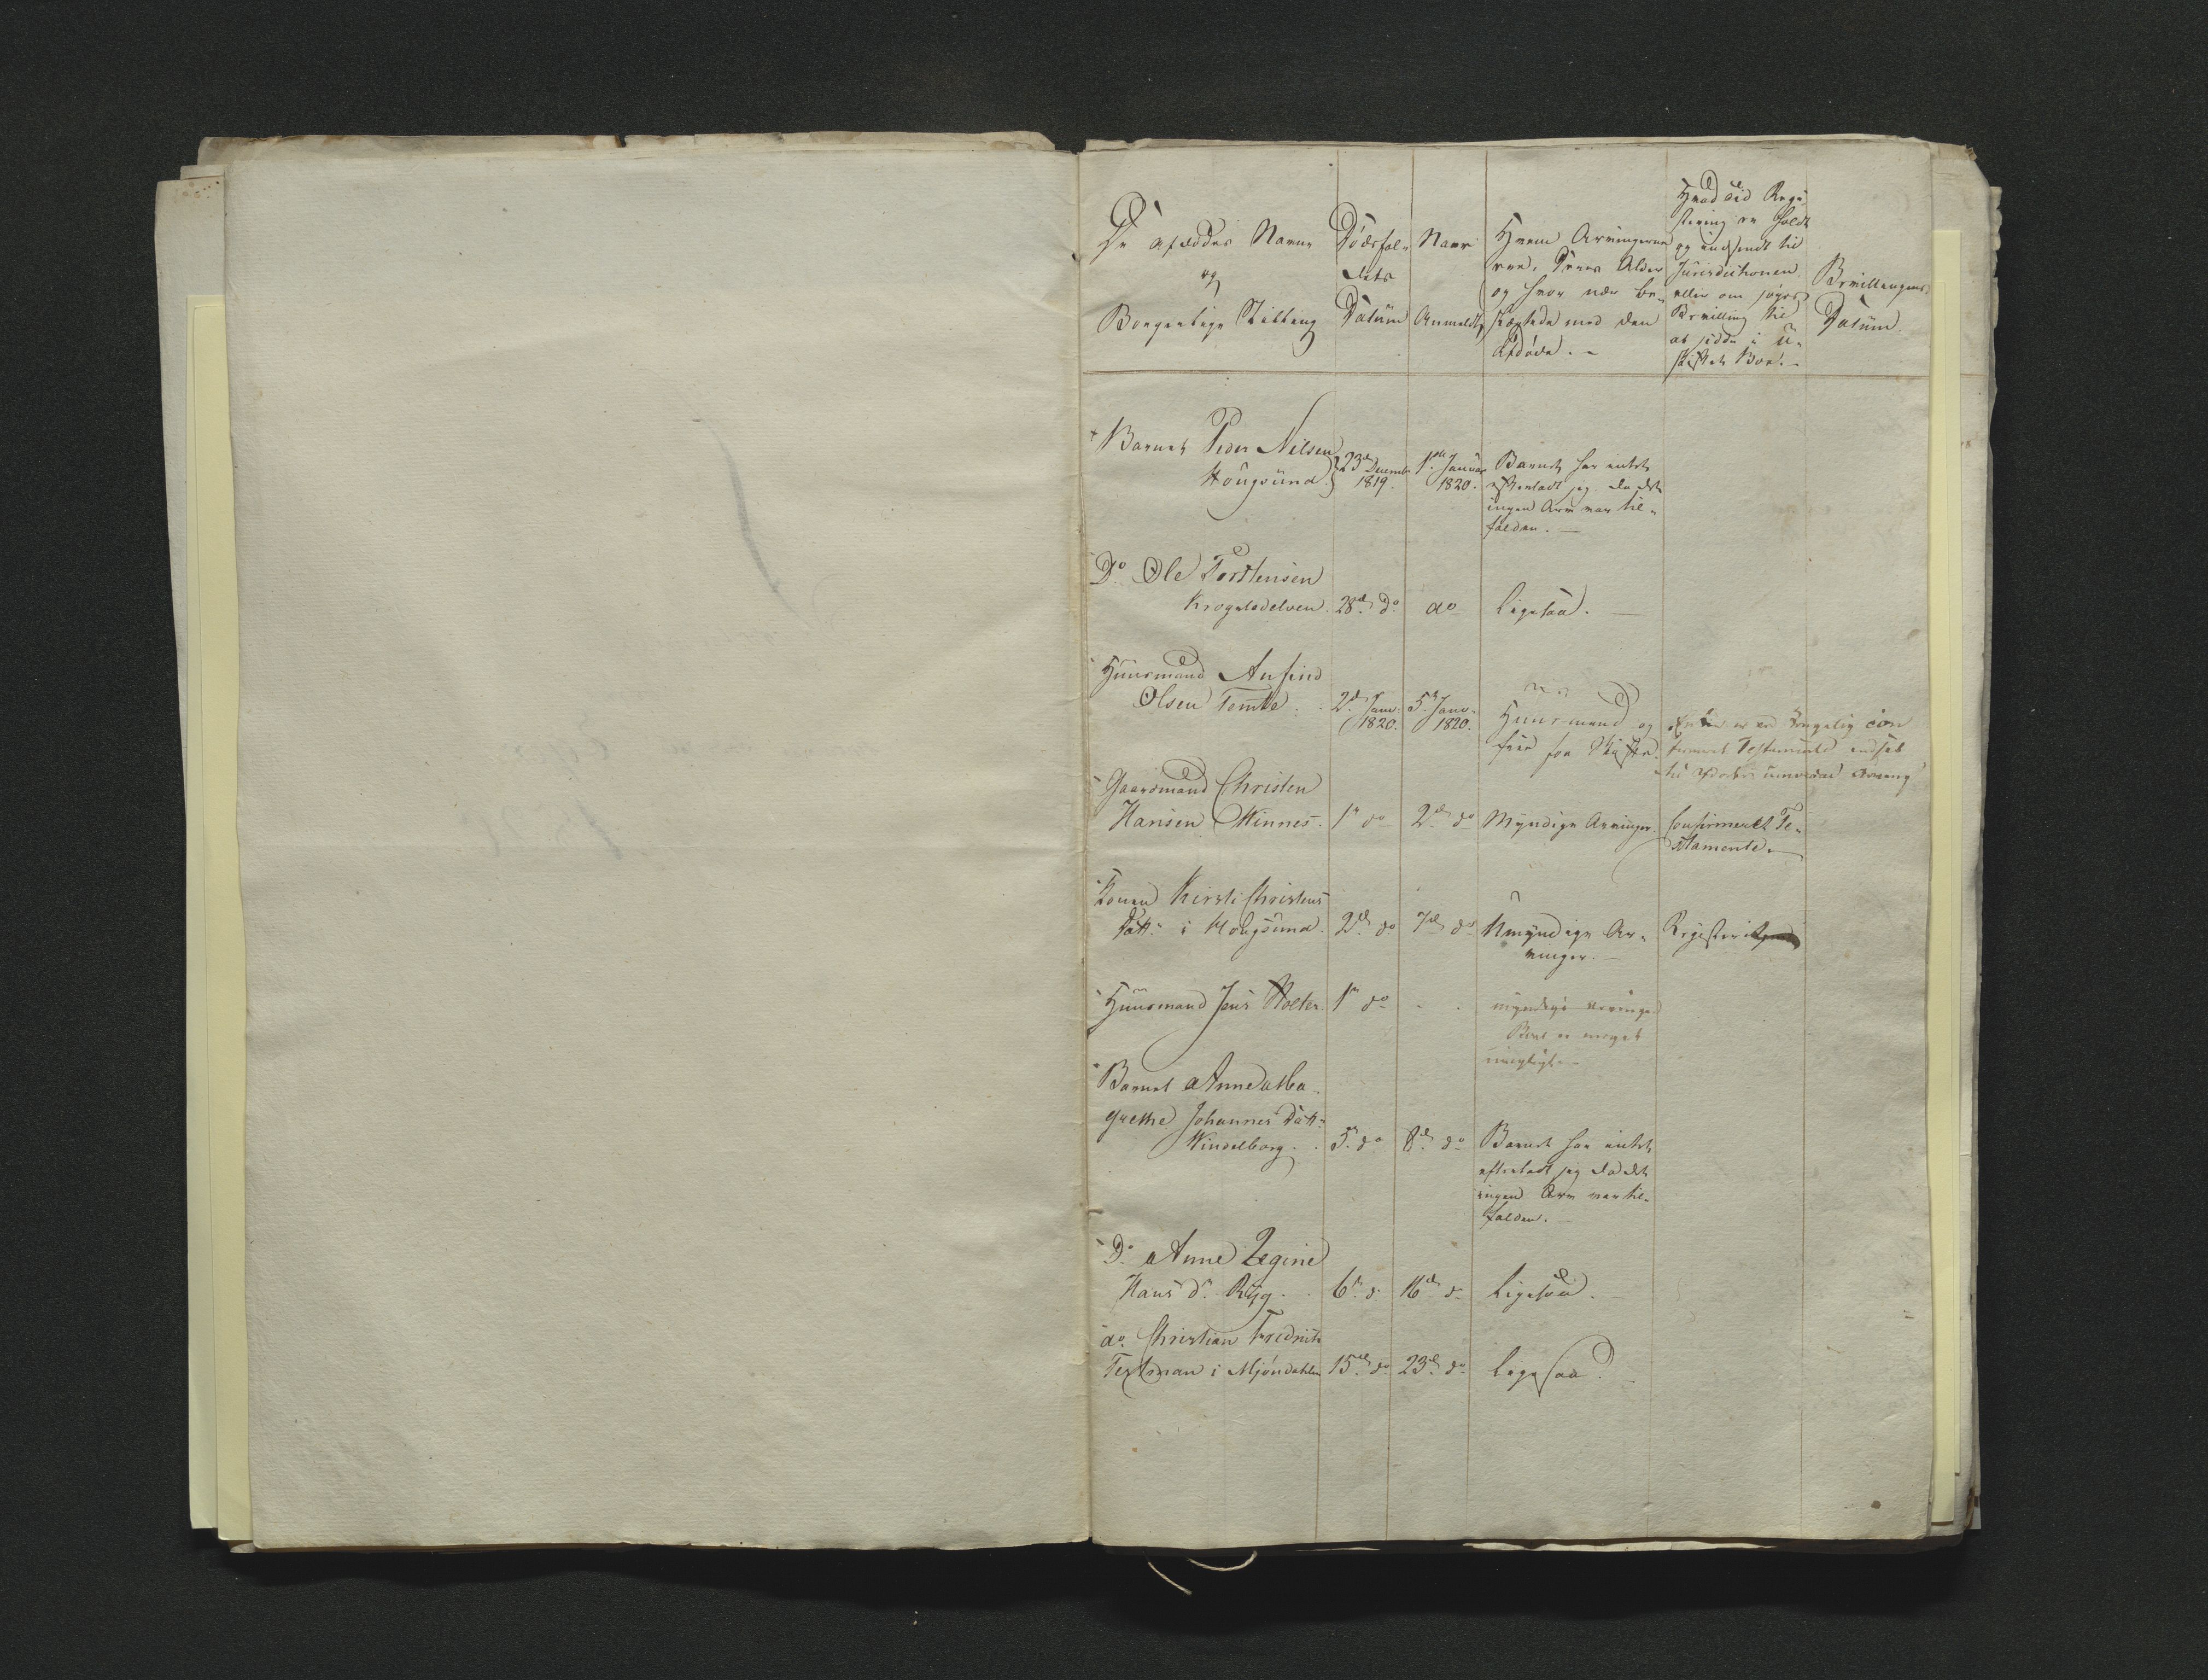 De afdødes Navne
og
Borgerlige Stilling
Dødsfal-
dets
Datüm
Naar
Anmeldt
Hvem Arvingerne
ere, Deres Alder
og hvor nær be-
slægtede med den
Afdøde. -
Hvad Tid Regi-
stering er holdt
og indsendt til
Jurisdictionen
eller om søges
Bevilling til
at sidde i ü-
skiftet Boe. -
Bevillingens
Datüm.
Barnet Peder Nilsen
Hougsünd.
23de Decembr
1819.
1ste Januar
1820.
Barnet har intet
efterladt sig da det
ingen Arv var til-
falden. -
Do Ole Torstensen
Krogstadelven.
28de Do
do
Ligesaa. -
Huusmand Anfind
Olsen Temte. .
2de Janv.
1820.
5te Janv.
1820.
Huusmand og
frie for Skifte.
Testamente indsat
Gaardmand Christen
Hansen Winnes.
1ste do
2de do
Myndige Arvinger.
Confirmeret Te-
stamente.
Konen Kirsti Christens
Dattr i Hougsünd.
2den do
7de do
Umyndige Ar-
vinger. -
Registeret
Huusmand Jens Holter.
1ste do
- .
myndige Arvinger
Boet er meget
Barnet Anne Matha
Grethe Johannes Dattr
Windelborg. .
5te do
8de do
Barnet har intet
efterladt sig da det
ingen Arv var til-
falden. -
Do Anne Regine
Hans dr Ryg. .
6te do
16de do
Ligesaa. -
do Christian Fredrik
Textman i Mjöndahlen
15de do
23de do
Ligesaa. -